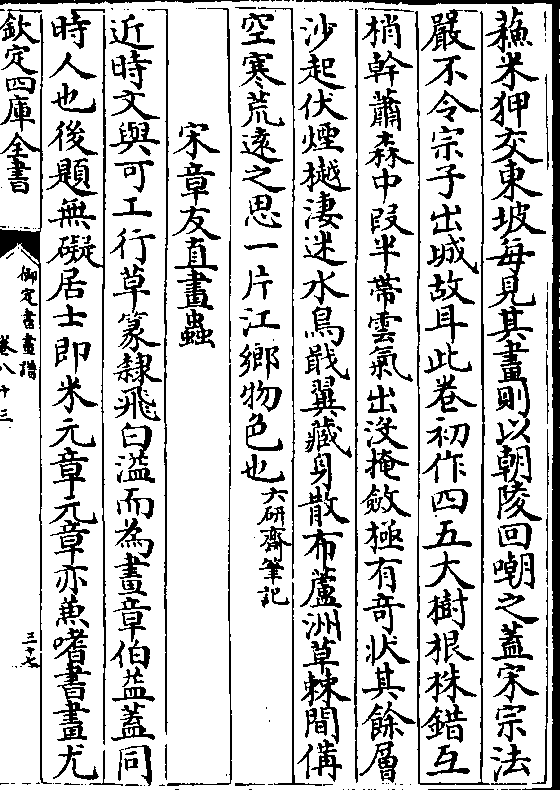 蘓米狎交東坡每見其畫則以朝陵回嘲之蓋宋宗法
嚴不令宗子出城故耳此卷初作四五大樹根株錯互
梢幹蕭森中段半帶雲氣出没掩斂極有竒状其餘層
沙起伏煙樾淒迷水鳥戢翼藏身散布蘆洲草棘間備
空寒荒遠之思一片江鄉物色也六研齋筆記
宋章友直畫蟲
近時文與可工行草篆隸飛白溢而為畫章伯益蓋同
時人也後題無礙居士即米元章元章亦兼嗜書畫尤
欽定四庫全書
御定書畫譜
卷八十三
三十七